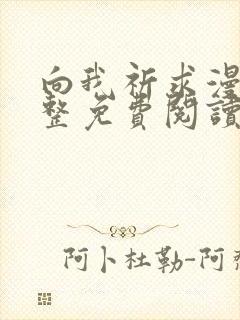 向我祈求漫
整免費閱讀
阿卜杜勒-阿